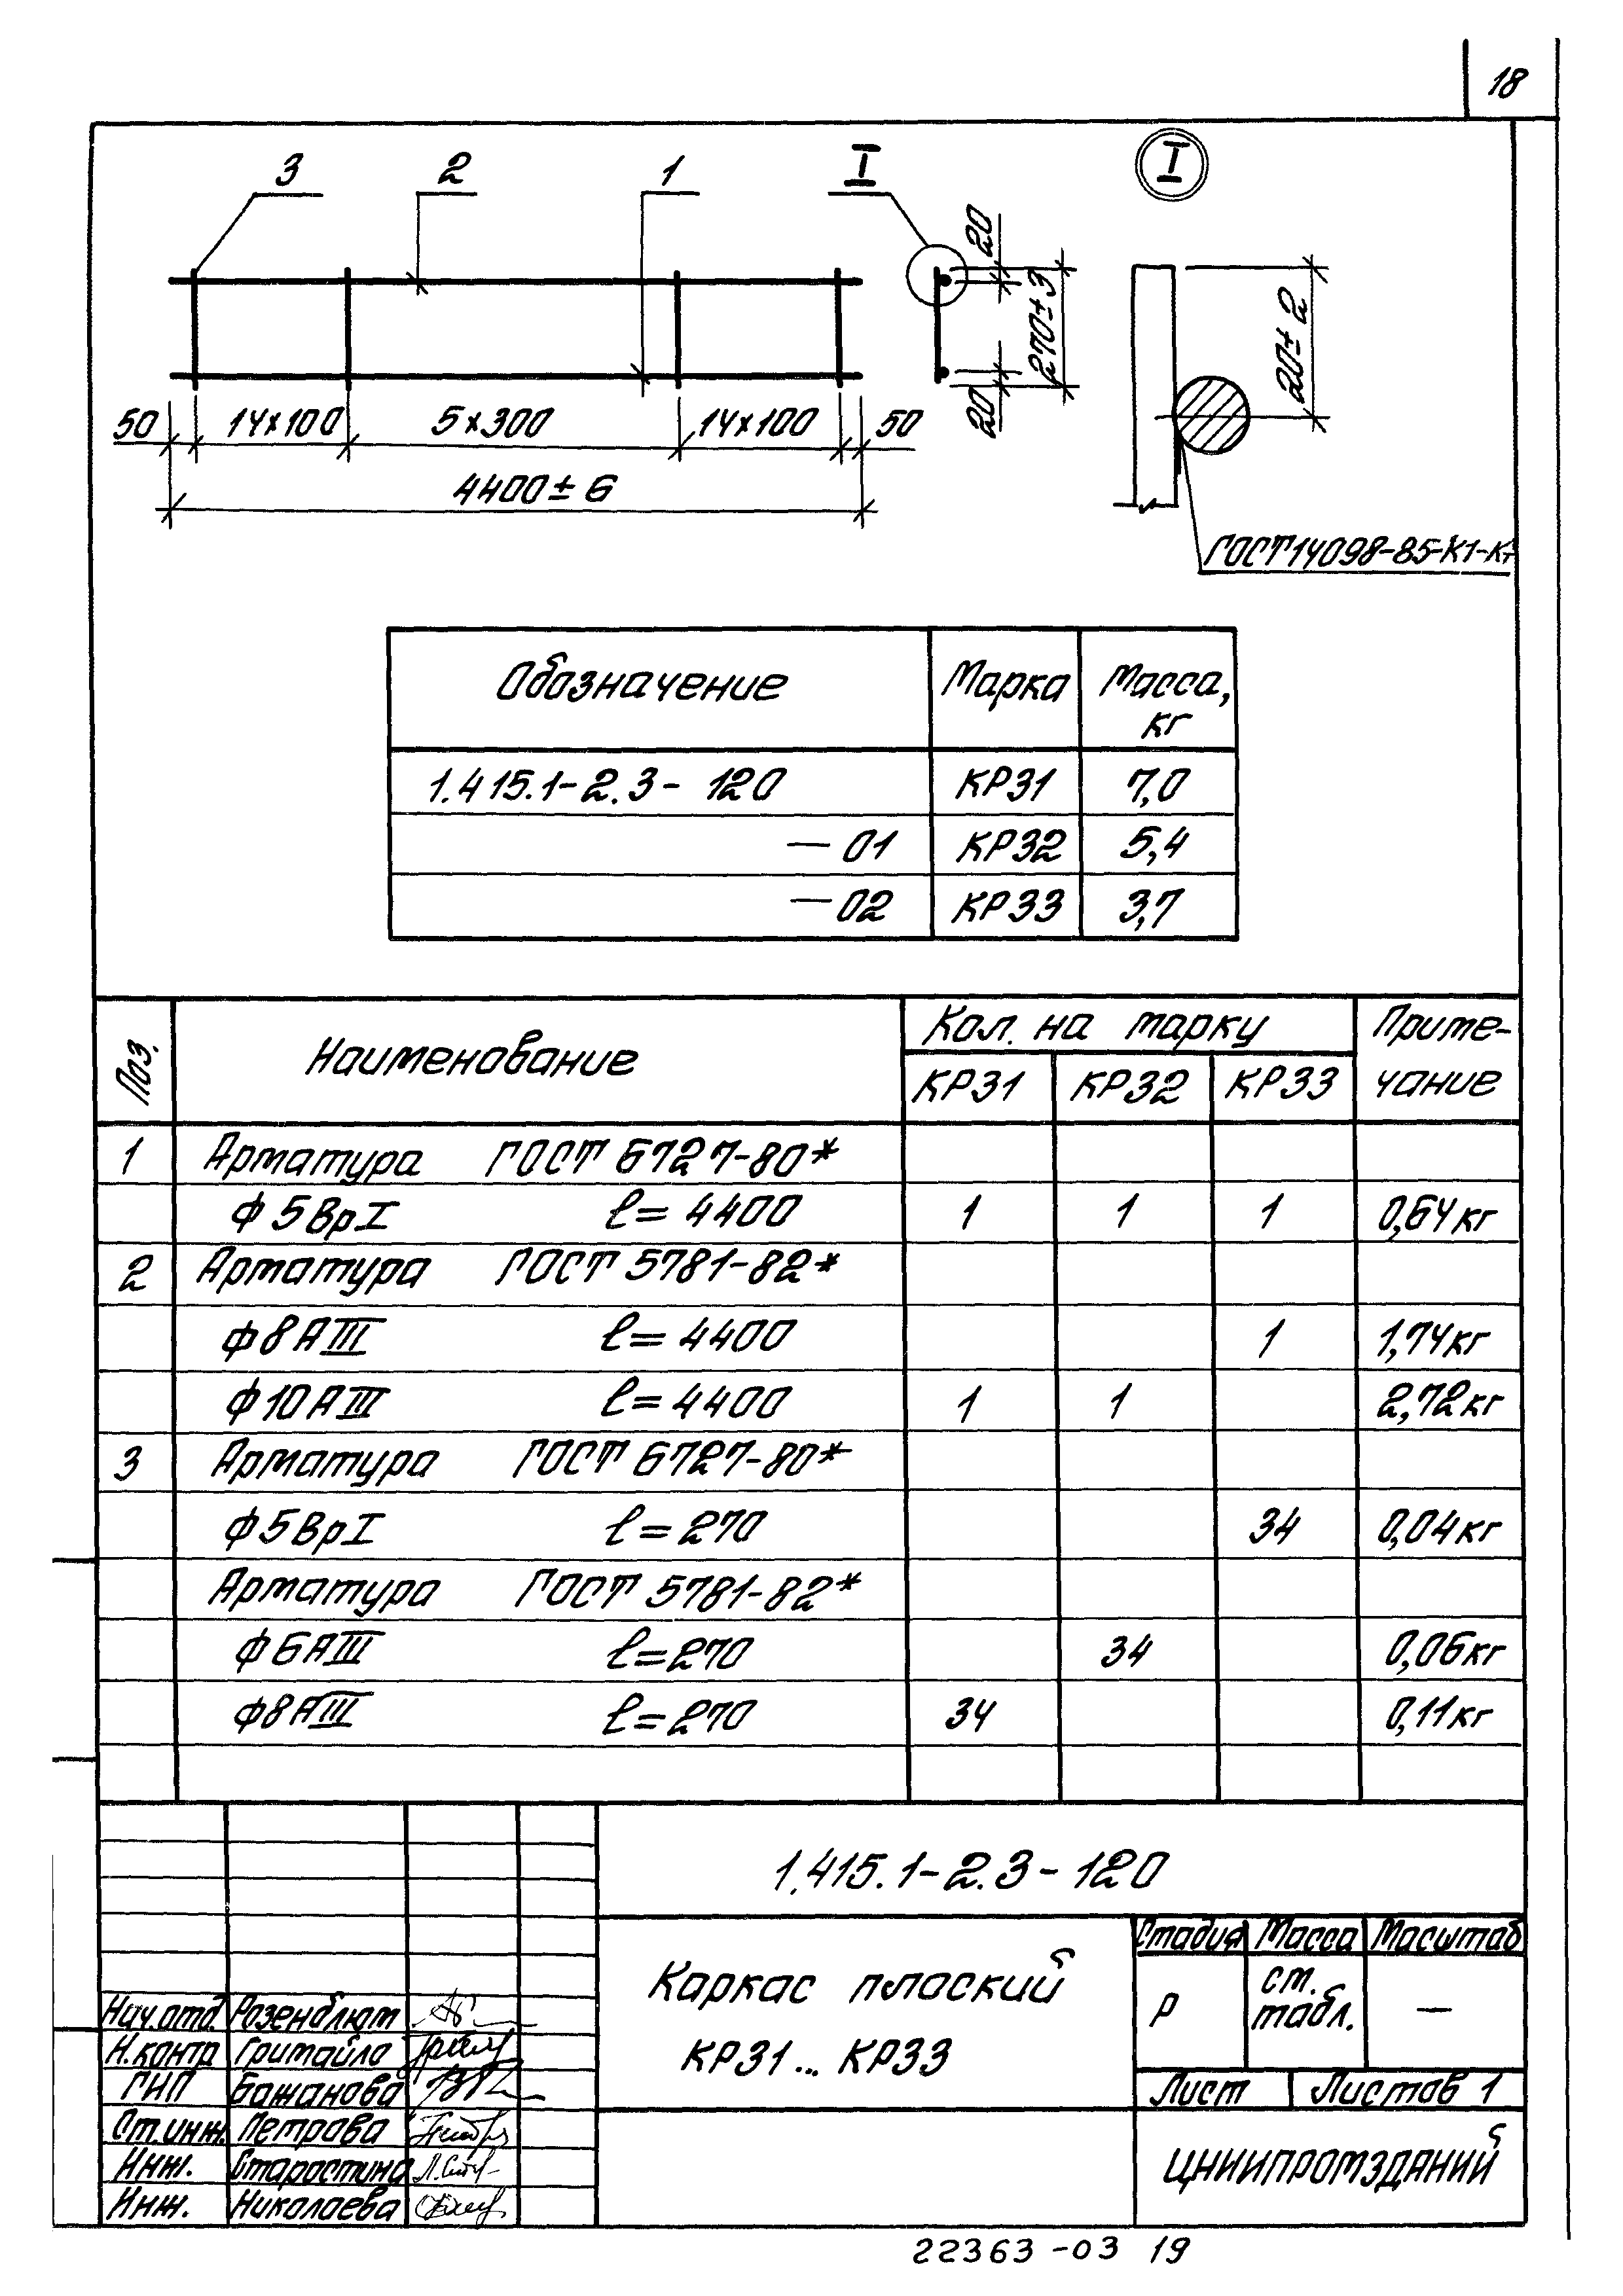 18
3 2 1 I I
20
270±3
20
20±2
50 14×100 5×300 14×100 50
4400±6
ГОСТ14098-85-К1-Кт
Обозначение Марка Масса, кг
1.415.1-2.3-120 КР31 7,0
—01 КР32 5,4
—02 КР33 3,7
Поз. Наименование Кол. на марку Приме-
КР31 КР32 КР33 чание
1 Арматура ГОСТ 6727-80*
ф5ВрI ℓ=4400 1 1 1 0,64кг
2 Арматура ГОСТ 5781-82*
ф8АIII ℓ=4400 1 1,74кг
ф10АIII ℓ=4400 1 1 2,72кг
3 Арматура ГОСТ 6727-80*
ф5ВрI ℓ=270 34 0,04кг
Арматура ГОСТ 5781-82*
ф6АIII ℓ=270 34 0,06кг
ф8АIII ℓ=270 34 0,11кг
1.415.1-2.3-120
Каркас плоский
КР31... КР33
Стадия Масса Масштаб
Р см. табл. —
Лист Листов 1
ЦНИИПРОМЗДАНИЙ
Нач.отд. Розенблюм
Н.контр Гритайло
ГИП Бажанова
Ст.инж. Петрова
Инж. Старостина
Инж. Николаева
22363-03 19